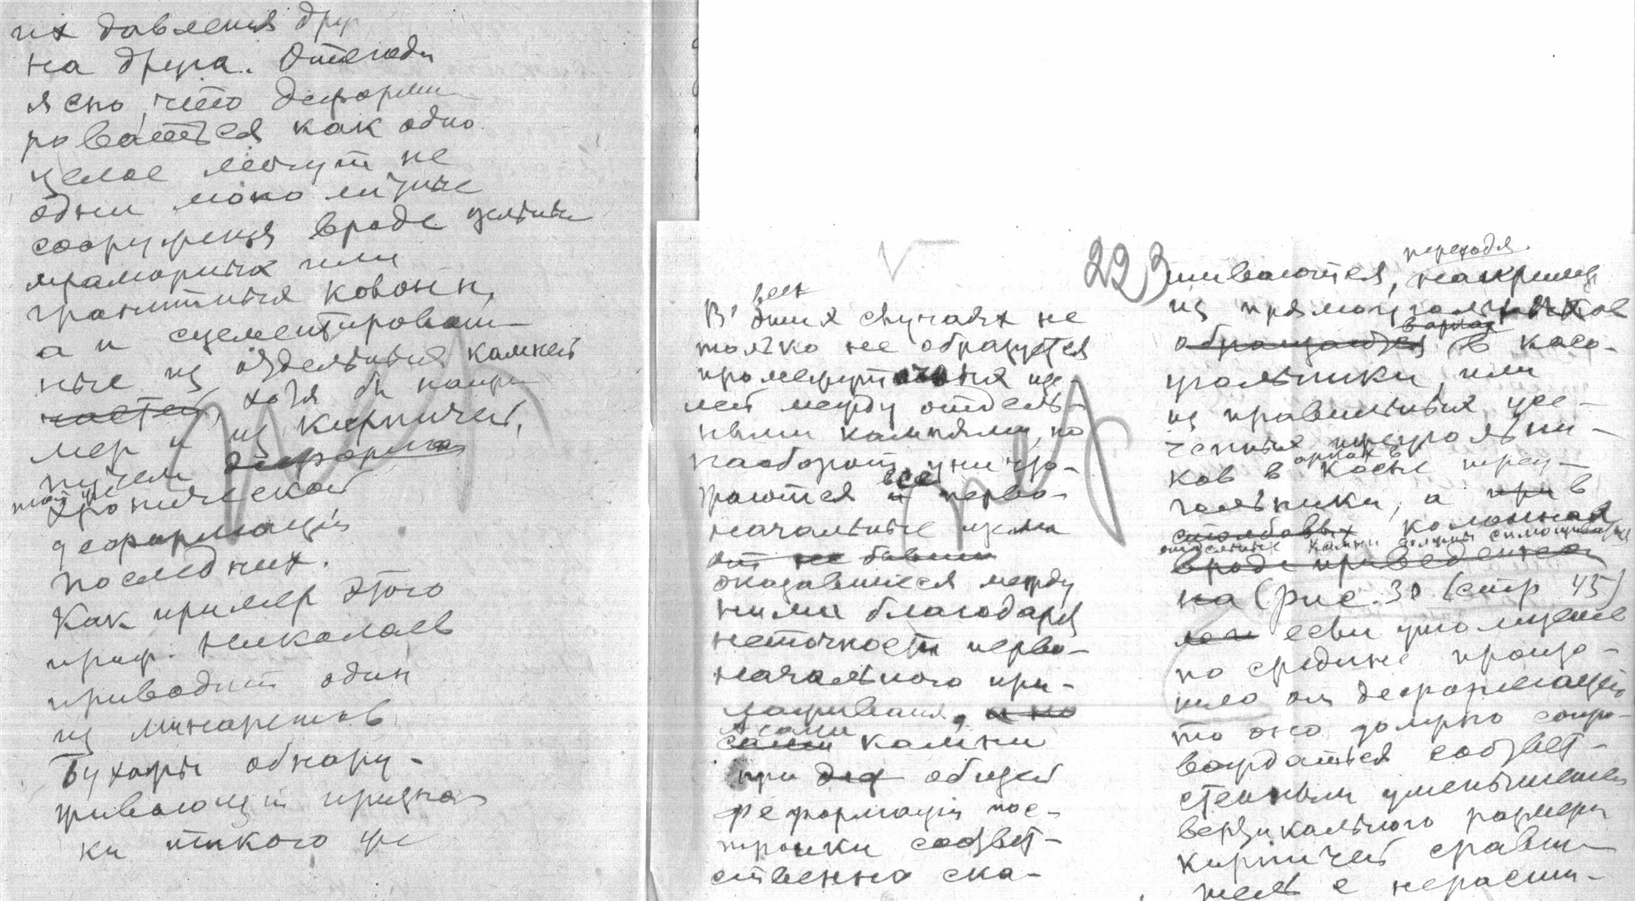 их давления друг
на друга. Отсюда
ясно, что деформи
роваться как одно
целое могут не
одни монолитные
сооружения вроде цельных
мраморных или
гранитных колонн,
а и сцементирован
ные из отдельных камней
частей, хотя бы напри
мер и из кирпичей,
путем
хронической
деформации
последних.
Как пример этого
проф. Николаев
приводит один
из минаретов
Бухары обнару-
живающий призна
ки такого же
223
всех
В этих случаях не
только не образуется
промежуточная ще-
лей между отдель-
ными камнями, но
наоборот уничто-
жаются все и перво-
начальные щели
оказавшиеся между
ними благодаря
неточности перво-
начального при-
лаживания, и но
А сами
сами камни
при общей
деформации пос-
тройки соответ-
ственно ска-
переходя
шиваются, например
из прямоугольников
обращаются в косо-
угольники, или
из правильных усе-
ченных треугольни-
ков в косые треу-
гольники, а при в
столбовых колоннах
отдельные камни должны сплющиваться
вроде приведенно
на (рис. 30 (стр 45)
если утолщение
по средине произо-
шло от деформации
то оно должно сопро-
вождаться соответ-
ственным уменьшением
вертикального размера
кирпичей сравни